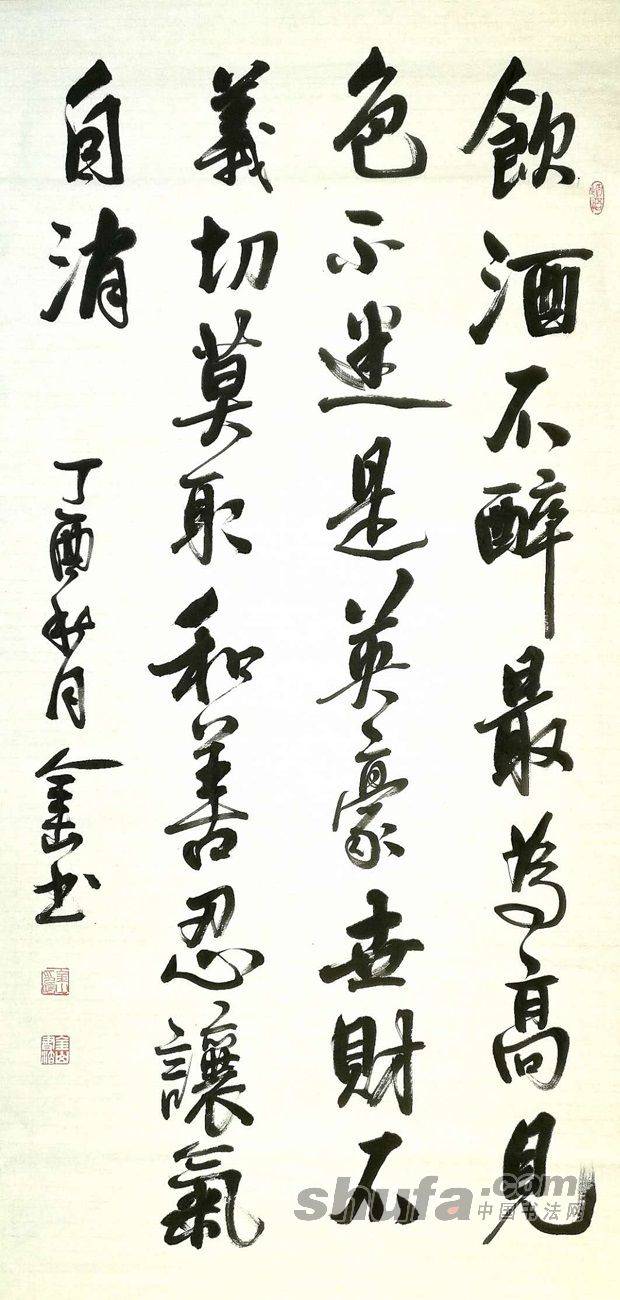 飲酒不醉最為高見
色不迷是英豪世財不
義切莫取和善忍讓氣
自消
丁酉秋月金山书
shufa.com
中国书法网